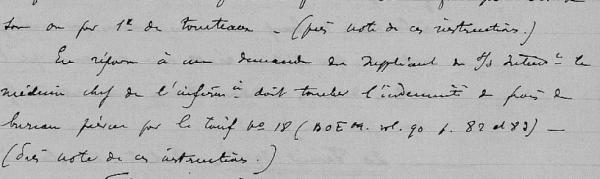 son ou par 1k de tourteaux - (pris note de ces instructions.)
En réponse à une demande du Suppliant du S/ Intend.t le
médecin chef de l'infirm.ie doit toucher l'indemnité de frais de
bureau prévue par le tarif No 18 (BOEM. vol. 90 p. 82 et 83) -
(pris note de ces instructions.)